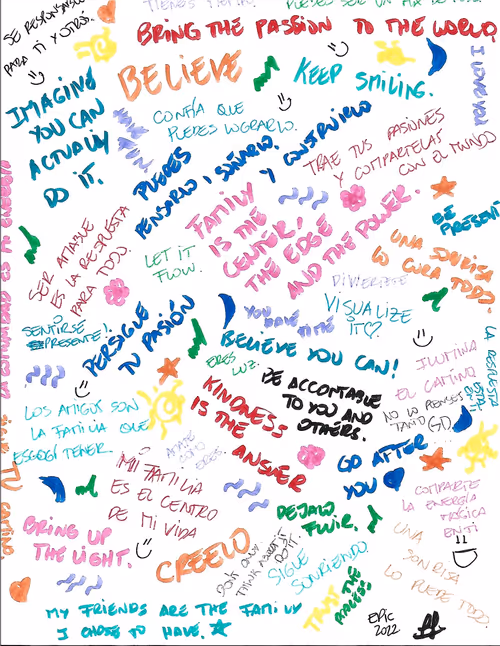 SE RESPONSABLE
PARA TI Y OTROS.
BRING THE PASSION TO THE WORLD
BELIEVE
KEEP SMILING.
I LOVE YOU
IMAGINE
YOU CAN
ACTUALLY
DO IT.
CONFÍA QUE
PUEDES LOGRARLO.
PUEDES
PENSARLO, SOÑARLO.
Y CONSTRUIRLO
TRAE TUS PASIONES
Y COMPARTELAS
CON EL MUNDO
FAMILY
IS THE
CENTER,
THE EDGE
AND THE POWER.
BE
PRESENT
SER AMABLE
ES LA RESPUESTA
PARA TODO.
LET IT
FLOW.
UNA SONRISA
LO CURA TODO.
DIVIERTETE
VISUALIZE
IT♡
SENTIRSE
PRESENTE!
PERSIGUE
TU PASIÓN
YOU HAVE TIME
BELIEVE YOU CAN!
ERES
LUZ.
ILUMINA
EL CAMINO
LA RESPUESTA
KINDNESS
IS THE
ANSWER
BE ACCOUNTABLE
TO YOU AND
OTHERS.
NO LO PIENSES
TANTO
GO.
LOS AMIGOS SON
LA FAMILIA QUE
ESCOGÍ TENER
AMATE
COMO
ERES.
GO AFTER
YOU
MI FAMILIA
ES EL CENTRO
DE MI VIDA
COMPARTE
LA ENERGÍA
MÁGICA
EN TI
BRING UP
THE LIGHT.
DEJALO
FLUIR.
CREELO
DON'T ONLY
THINK ABOUT IT
DO IT.
SIGUE
SONRIENDO.
UNA
SONRISA
LO PUEDE TODO
TRUST THE
PROCESS
MY FRIENDS ARE THE FAMILY
I CHOSE TO HAVE.
EPIC
2022